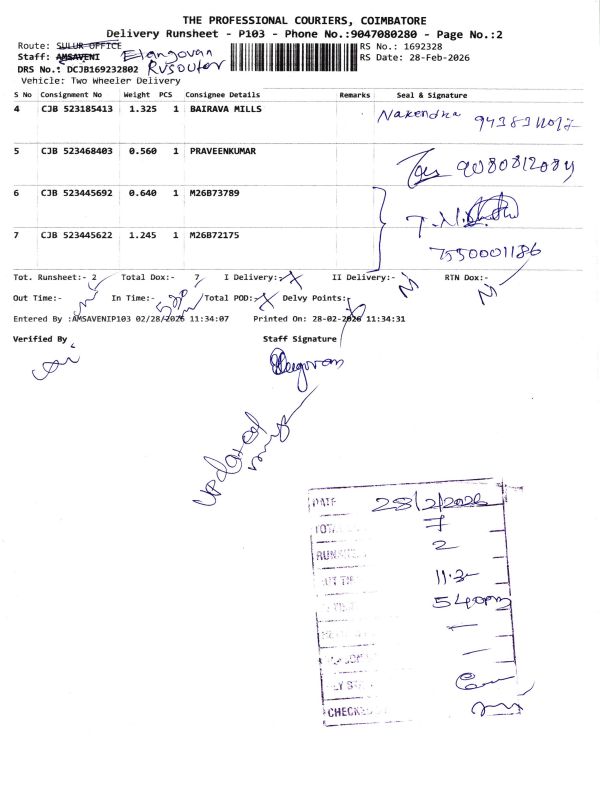 THE PROFESSIONAL COURIERS, COIMBATORE
Delivery Runsheet - P103 - Phone No.:9047080280 - Page No.:2
Route: SULUR OFFICE
RS No.: 1692328
Staff: AMSAVENI Elangovan
RS Date: 28-Feb-2026
DRS No.: DCJB169232802
Vehicle: Two Wheeler Delivery
S No Consignment No Weight PCS Consignee Details Remarks Seal & Signature
4 CJB 523185413 1.325 1 BAIRAVA MILLS Narendra
5 CJB 523468403 0.560 1 PRAVEENKUMAR 9080812084
6 CJB 523445692 0.640 1 M26B73789
7 CJB 523445622 1.245 1 M26B72175 7550001186
Tot. Runsheet:- 2 Total Dox:- 7 I Delivery:- II Delivery:- RTN Dox:-
Out Time:- In Time:- Total POD:- Delvy Points:-
Entered By :AMSAVENIP103 02/28/2026 11:34:07 Printed On: 28-02-2026 11:34:31
Verified By Staff Signature
Elangovan
updated
DATE 28/2/2026
7
2
540pm
CHECKED